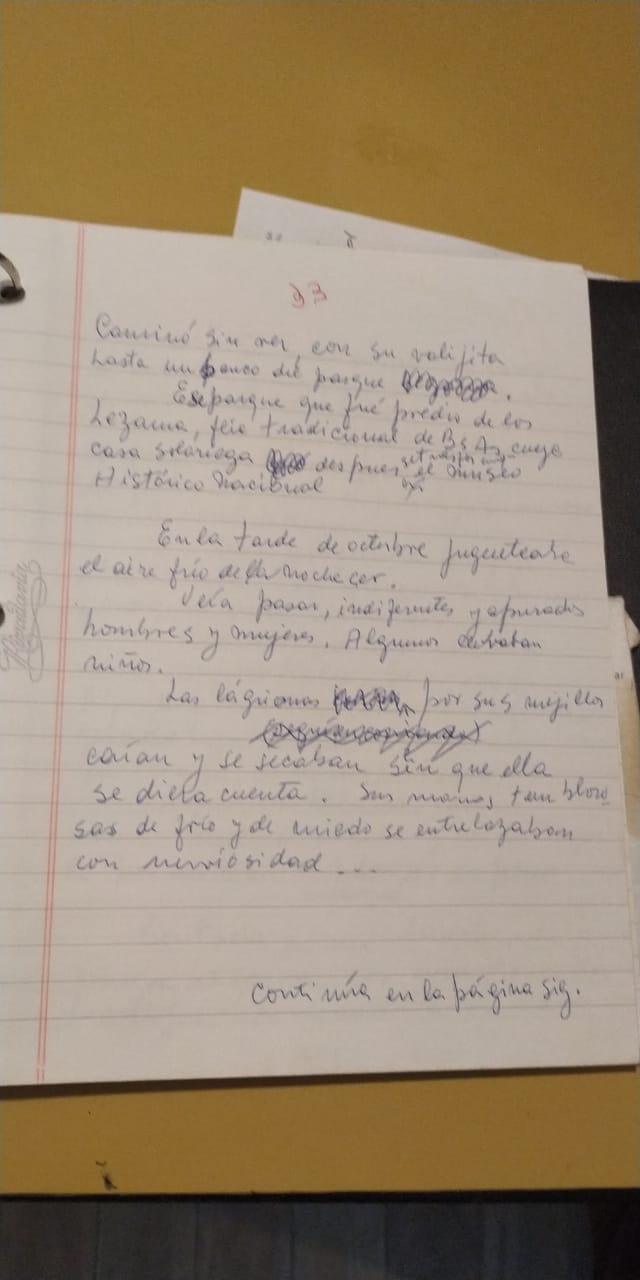 33
Caminó sin ver, con su valijita
hasta un banco del parque
Ese parque que fué predio de los
Lezama, feio tradicional de Bs As, cuya
casa solariega despues se transformó
en el Museo
Histórico Nacional
En la tarde de octubre jugueteaba
el aire frío del anochecer.
Veía pasar, indiferentes y apurados
hombres y mujeres. Algunos llevaban
niños.
Las lágrimas por sus mejillas
caían y se secaban sin que ella
se diera cuenta. Sus manos, tembloro
sas de frío y de miedo se entrelazaban
con nerviosidad ...
continúa en la página sig.
Rivadavia